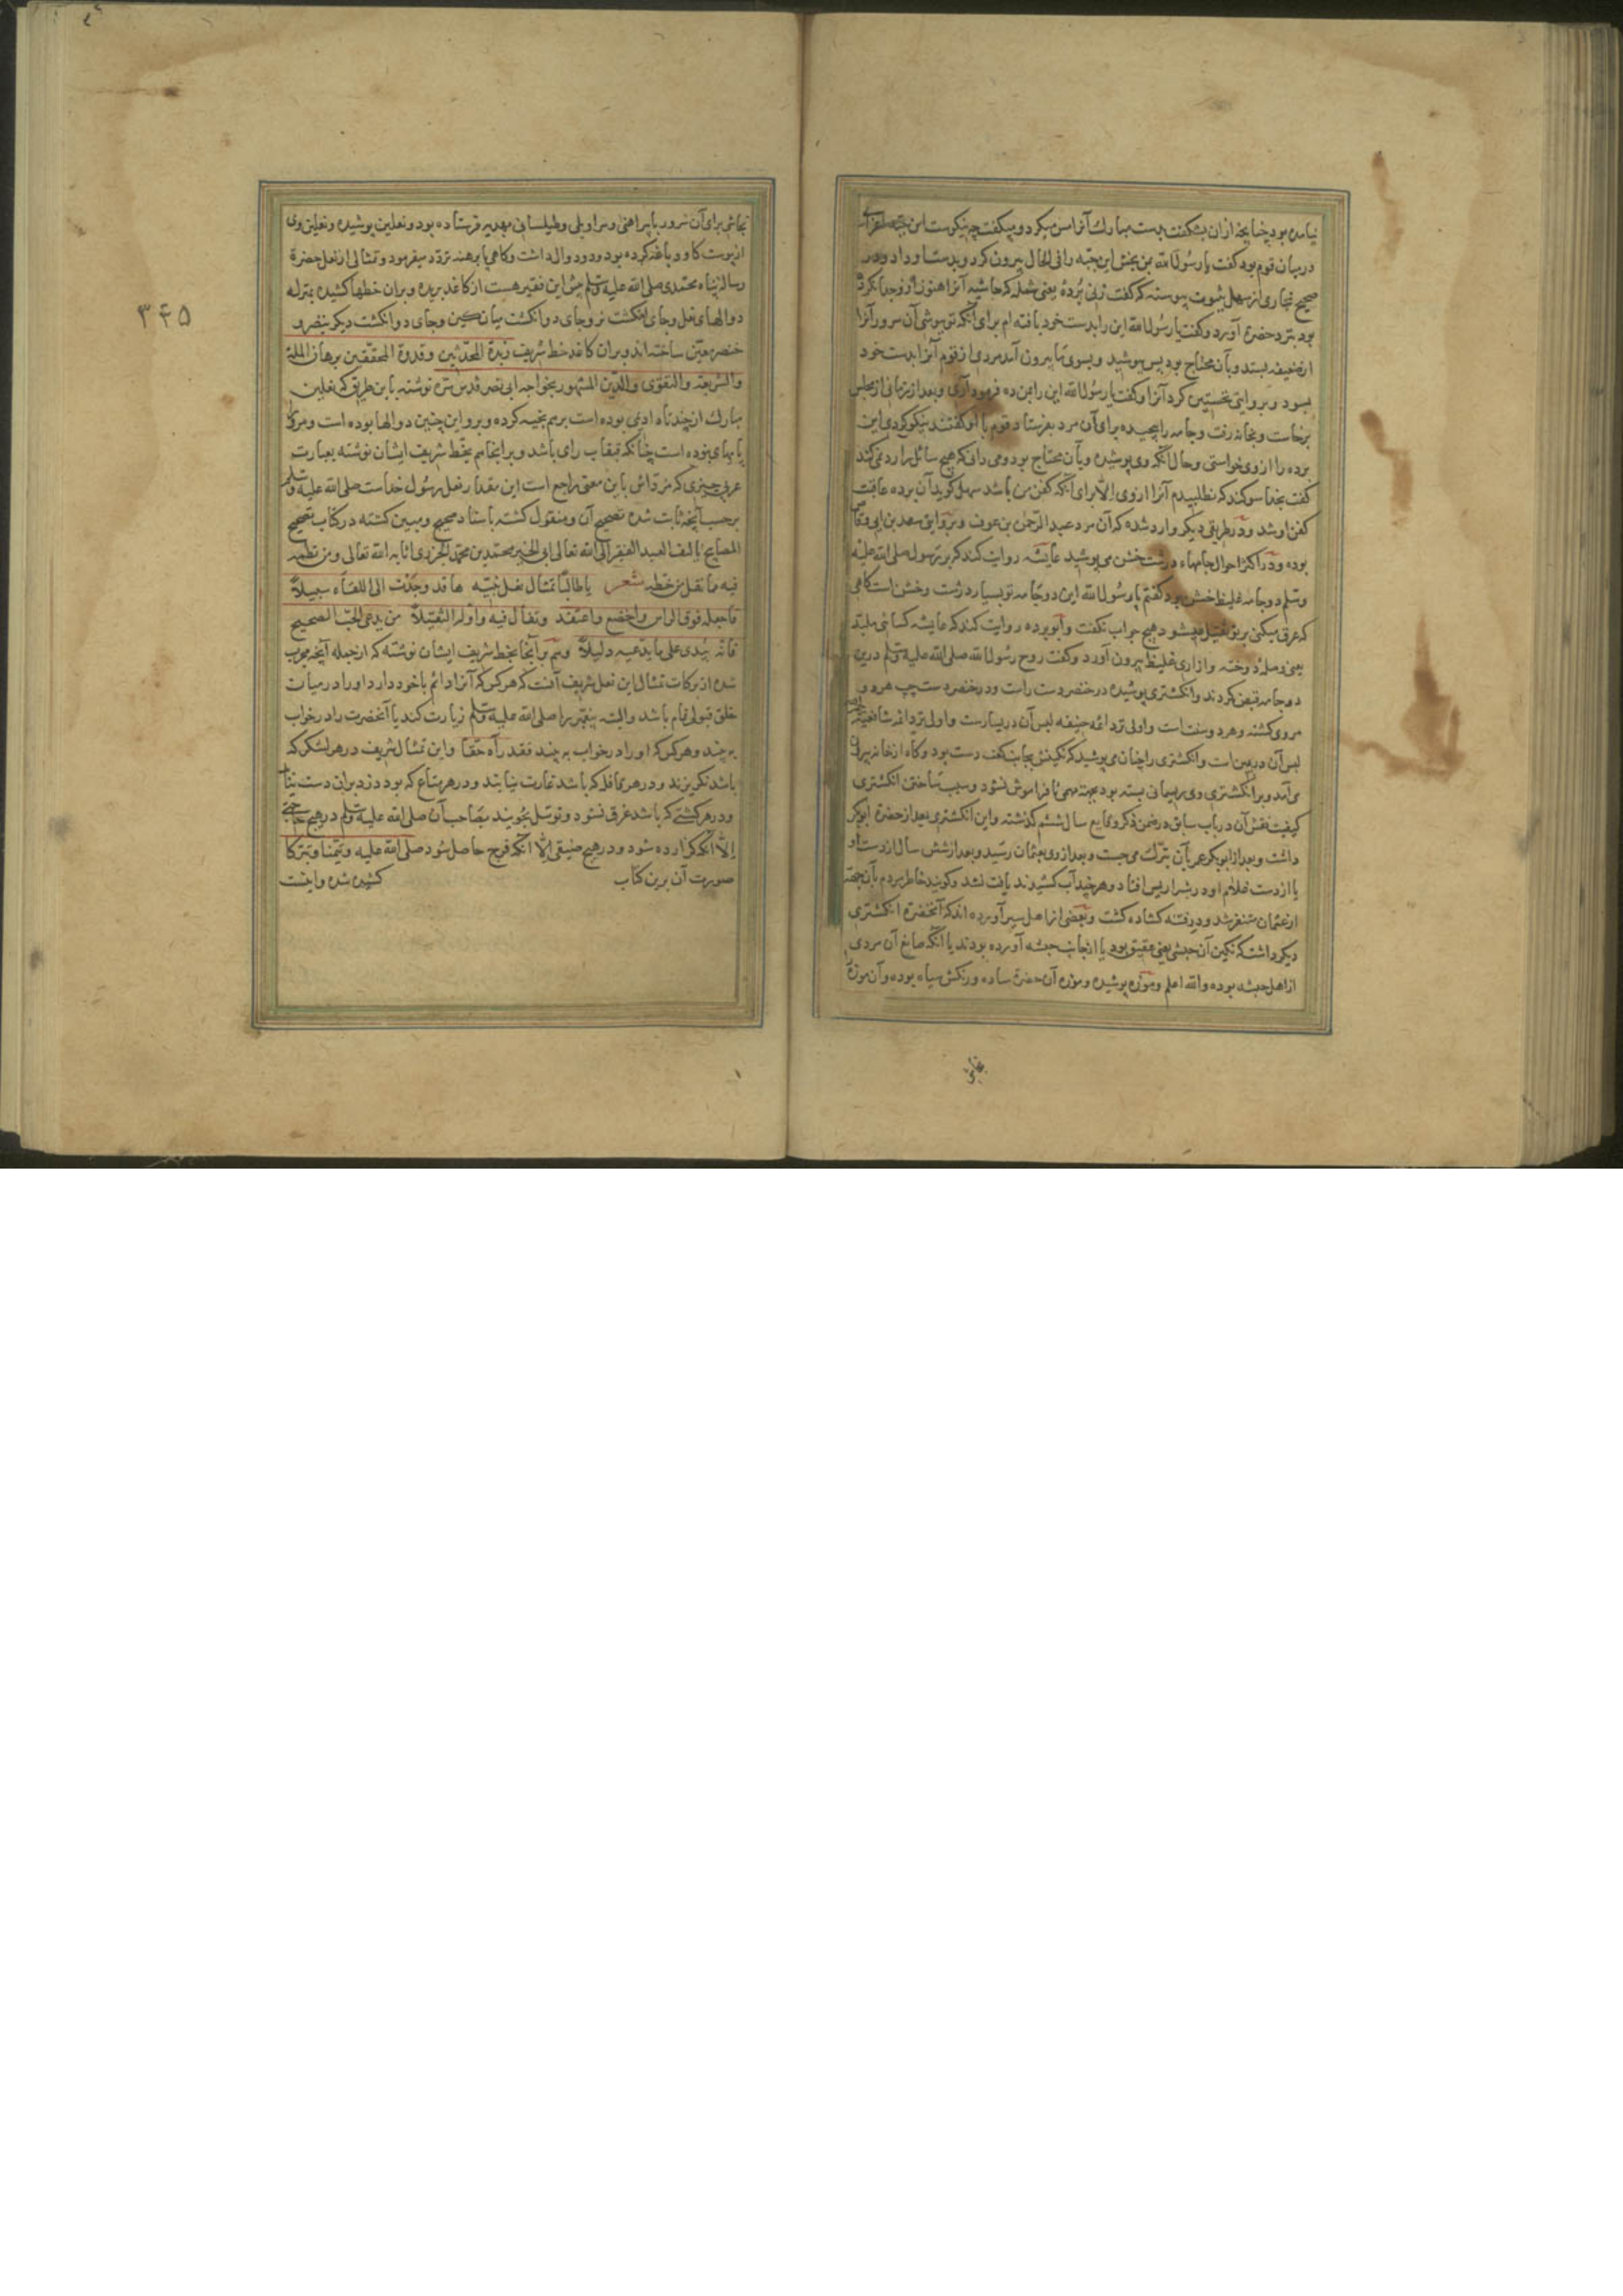 نیامده بود چنانچه ازان بشکفت بدست مبارک آنرا مس میکرد و میگفت چه نیکوست این جبه
درمیان قوم بود گفت یا رسول الله بمن بخش این جبه را فی الحال بیرون کرد و بدست او داد ودر
صحیح بخاری از سهل ثبوت پیوسته که گفت زنی بردهٔ یعنی شمله که حاشیه آنرا هنوز ازو جدا نکرده
بود نزد حضرة آورد وگفت یا رسول الله این را بدست خود بافته ام برای آنکه تو پوشی آن سرور آنرا
ازضعیفه بستد وبآن محتاج بود پس پوشید وبسوی ما بیرون آمد مردی از قوم آنرا بدست خود
بسود وبروایتی تحسین کرد آنرا وگفت یا رسول الله این را بمن ده فرمود آری وبعد از زمانی ازمجلس
برخاست وبخانه رفت وجامه را پیچیده برای آن مرد بفرستاد قوم با او گفتند نیکو نکردی این
برده را ازوی خواستی وحال آنکه وی پوشیده وبآن محتاج بود ومی دانی که هیچ سائل را رد نمی کند
گفت بخدا سوکند که نطلبیدم آنرا ازوی الا برای آنکه کفن من باشد سهل کوید آن برده عاقبت
کفن او شد ودر طریقی دیکر وارد شده که آن مرد عبد الرحمن بن عوف وبروایتی سعد بن ابی وقاص
بوده ودر اکثر احوال جامهاء درشت خشن می پوشید عایشه روایت کند که بر رسول صلی الله علیه
وسلم دو جامه غلیظ خشن بود کفتم یا رسول الله این دو جامه تو بسیار درشت وخشن است کاهی
که عرق میکنی بر تو ثقیل میشود هیچ جواب نکفت وابو برده روایت کند که عایشه کسائی ملبد
یعنی وصله دوخته وازاری غلیظ بیرون آورد وکفت روح رسول الله صلی الله علیه وسلم درین
دو جامه قبض کردند وانکشتری پوشیده درخنصر دست راست ودرخنصر دست چپ هر دو
مروی کشته وهر دو سنت است واولی نزد ائمه حنیفه لبس آن دریسارست واولی نزد ائمه شافعیه
لبس آن دریمین است وانکشتری را چنان می پوشید که نکینش بجانب کف دست بود وکاه ازخانه بیرون
می آمد وبر انکشتری وی ریسمانی بسته بود بجهة مهمی تا فراموش نشود وسبب ساختن انکشتری
کیفیت نقش آن درباب سابق درضمن ذکر وقایع سال ششم کذشته واین انکشتری بعد از حضرة ابوبکر
داشت وبعد از ابوبکر عمر بآن تبرک می جست وبعد ازوی بعثمان رسید وبعد ازشش سال ازدست او
یا ازدست غلام او در بئر اریس افتاد وهر چند آب کشیدند یافت نشد وکویند خاطر مردم بآن جهة
ازعثمان متنفر شد ودر فتنه کشاده کشت وبعضی از اهل سیر آورده اند که آنحضرة انکشتری
دیکر داشت که نکین آن حبشی یعنی عقیق بود یا ازجانب حبشه آورده بودند یا آنکه صانع آن مردی
از اهل حبشه بوده والله اعلم وموزه پوشیده وموزه آن حضرة ساده ورنکش سیاه بوده وآن موزه
نجاشی
۳۴۵
نجاشی برای آن سرور با پیراهنی وسراویلی وطیلسانی بهدیه فرستاده بود ونعلین پوشیده ونعلین وی
ازپوست کاو دباغت کرده بود ودو دوال داشت وکاهی پا برهنه تردد میفرمود وتمثالی ازنعل حضرة
رسالة پناه محمدی صلی الله علیه وسلم پیش این فقیر هست ازکاغذ بریده وبران خطها کشیده بمنزله
دوالهای نعل وجای انکشت نر وجای دو انکشت میانکین وجای دو انکشت دیکر بنصر و
خنصر معین ساخته اند وبران کاغذ خط شریف زبدة المحدثین وقدوة المحققین برهان الملة
والشریعة والتقوی والدین المشهور بخواجه ابی نصر قدس سره نوشته باین طریق که نعلین
مبارک ازچند تا ادیم بوده است برهم بخیه کرده وبرو این چنین دوالها بوده است ومر
پا بهای بوده است چنانکه قبقاب رای باشد وبرانجا هم بخط شریف ایشان نوشته بعبارت
عربی چیزی که مؤداش باین معنی راجع است این مقدار نعل رسول خداست صلی الله علیه وسلم
برحسب آنچه ثابت شده تصحیح آن ومنقول کشته باسناد صحیح ومبین کشته درکتاب تصحیح
المصابیح تالیف العبد الفقیر الی الله تعالی ابی الخیر محمد بن محمد الجزری اثابه الله تعالی ومن نظمه
فیه ما نقل من خطه شعر یا طالبا تمثال نعل نبیه ها قد وجدت الی اللقاء سبیلا
فاجعله فوق الراس واخضع واعتقد وتغال فیه واوله التقبیلا من یدعی الحب الصحیح
فانه یبدی علی ما یدعیه دلیلا وهم وانجا بخط شریف ایشان نوشته که ازجمله آنچه مجرب
شده ازبرکات تمثال این نعل شریف آنست که هرکس که آنرا دائم باخود دارد اورا درمیان
خلق قبولی تمام باشد والبته پیغمبر را صلی الله علیه وسلم زیارت کند یا آنحضرت را درخواب
بیند وهرکس که اورا درخواب بیند فقد رآه حقا واین تمثال شریف درهر لشکر که
باشد نکریزند ودرهر قافله که باشد غارت نیابند ودرهر متاع که بود دزد بران دست نیابد
ودرهر کشتی که باشد غرق نشود وتوسل نجویند بصاحب آن صلی الله علیه وسلم درهیچ حاجتی
الا آنکه کزارده شود ودرهیچ ضیقی الا آنکه فرج حاصل شود صلی الله علیه وتیمنا وتبرکا
صورت آن برین کتاب کشیده شده واینست